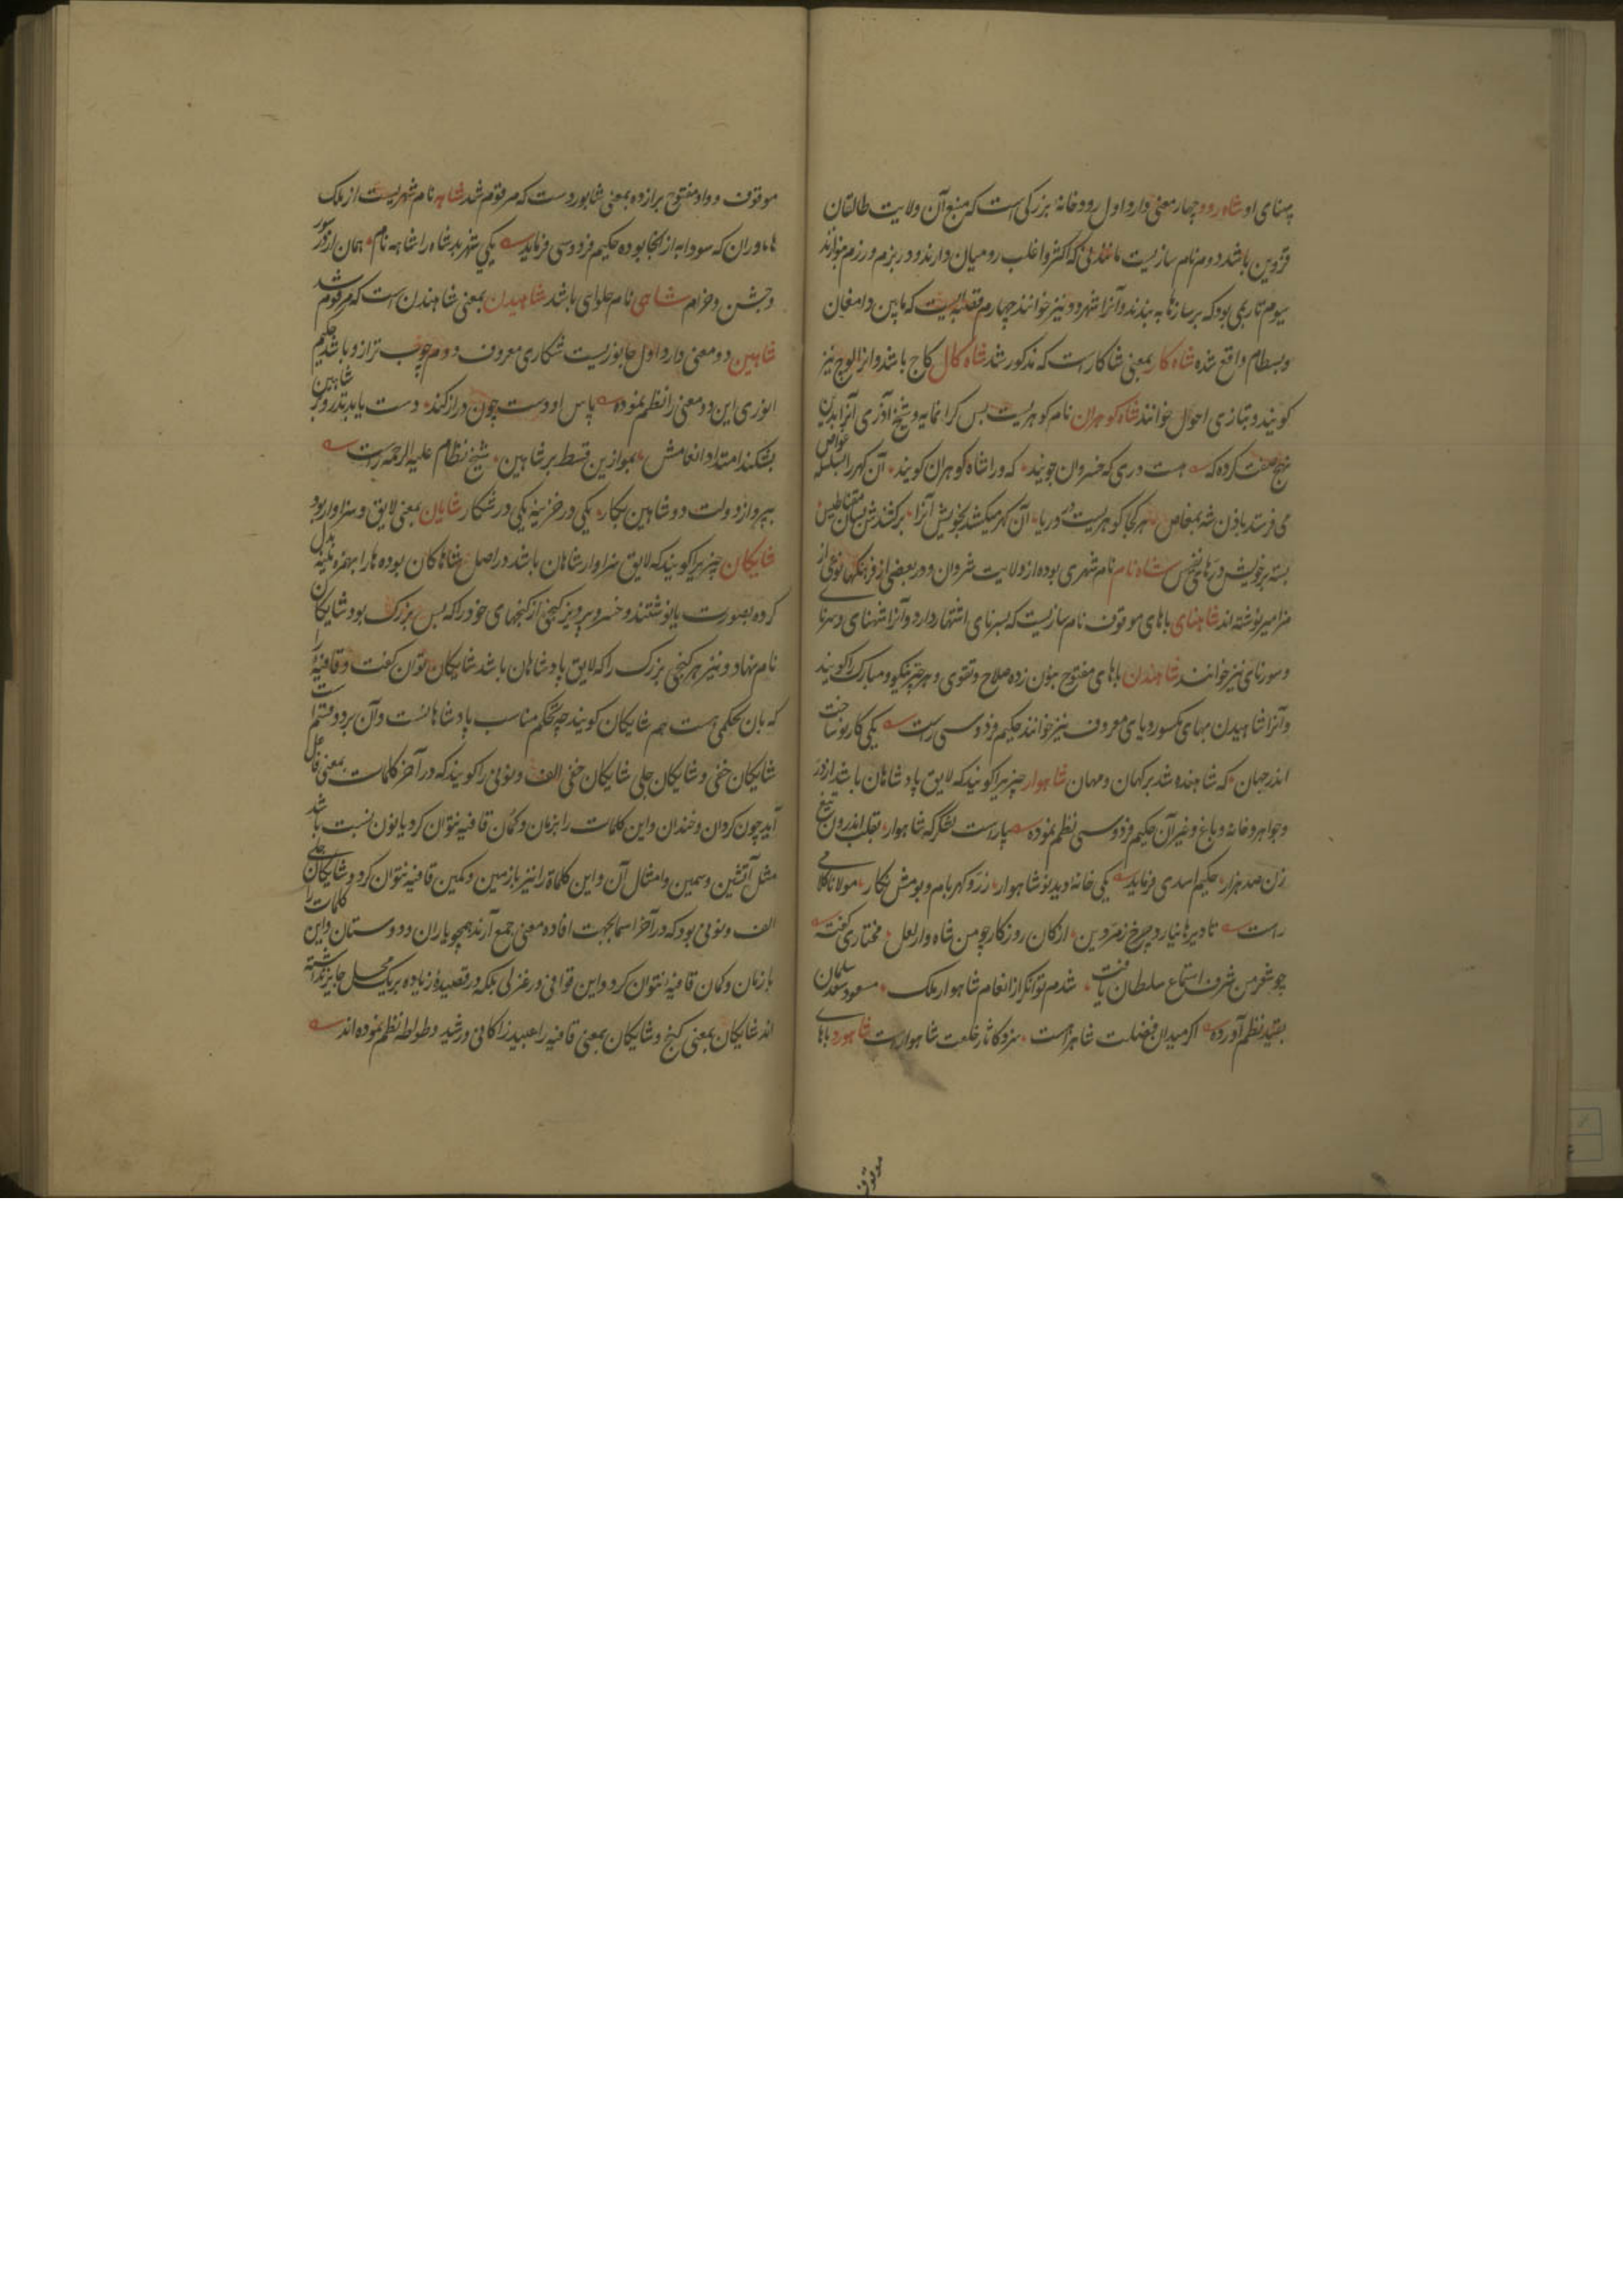 پهنای او شاه رود چهار معنی دارد اول رودخانهٔ بزرگی است که منبع آن ولایت طالقان
قزوین باشد دوم نام سازیست مانند نی که اکثر و اغلب رومیان دارند و در بزم و رزم نوازند
سیوم تار بمی بود که بر سازها به بندند و آنرا شهرود نیز خوانند چهارم قصبه ایست که مابین دامغان
و بسطام واقع شده شاه کار بمعنی شاکار است که مذکور شد شاه کال کاج باشد و انرا لوچ نیز
کویند و بتازی احول خوانند شاه کوهران نام کوهریست بس کرانمایه و شیخ آذری آنرا بدین
نهج صفت کرده که هست دری که خسروان جویند که ورا شاه کوهران کویند آن کهر را بسلسله غواص
می فرستد باذن شه بمغاص هر کجا کوهریست در دریا آن کهر میکشد بخویش آنرا برکشدشن بسان مقناطیس
بسته بر خویش درهای نفیس شاه نام نام شهری بوده از ولایت شروان و در بعضی از فرهنکها نوعی از
مزامیر نوشته اند شاهنای باهای موقوف نام سازیست که بسرنای اشتهار دارد و آنرا شهنای و سرنا
و سورنای نیز خوانند شاهندن باهای مفتوح بنون زده صلاح و تقوی و هر چیز نیکو و مبارک را کویند
و آنرا شاهیدن بهای مکسور و یای معروف نیز خوانند حکیم فردوسی راست یکی کار نو ساخت
اندر جهان که شاهنده شد بر کهان و مهان شاهوار چیزیرا کویند که لایق پادشاهان باشد از در
و جواهر و خانه و باغ و غیر آن حکیم فردوسی نظم نموده بیاراست لشکر که شاهوار بقلب اندرون تیغ
زن صد هزار حکیم اسدی فرماید یکی خانه دید نو شاهوار ز زر و کهر بام و بومش نکار مولانا کلامی
راست تا دیرها نیارد چرخ زمردین از کان روزکار چو من شاه وار لعل مختاری کفته
چو شعر من شرف استماع سلطان یافت شدم توانکر از انعام شاهوار ملک مسعود سعد سلمان
بقید نظم آورده اکر میدان فضلت شاهراست سزد کانار خلعت شاهوار است شاهورد باهای
موقوف
موقوف و واو مفتوح برازده بمعنی شابورد ست که مرقوم شد شاهه نام شهریست از ملک
هاماوران که سودابه از آنجا بوده حکیم فردوسی فرماید یکی شهر بد شاه را شاهه نام همان از در سور
و جشن و خرام شاهی نام حلوای باشد شاهیدن بمعنی شاهندن است که مرقوم شد
شاهین دو معنی دارد اول جانوریست شکاری معروف دوم چوب ترازو باشد حکیم
انوری این دو معنی را نظم نموده پاس او دست چون دراز کند دست یابد تذرو بر شاهین
بشکند امتداد انعامش بموازین قسط بر شاهین شیخ نظام علیه الرحمه راست
بپرواز دولت دو شاهین بکار یکی در خزینه یکی در شکار شایان بمعنی لایق و سزاوار بود
شایکان چیزیرا کویند که لایق سزاوار شاهان باشد در اصل شاهاکان بوده ها را بهمزه ملینه بدل
کرده بصورت یا نوشتند و خسرو پرویز کنجی از کنجهای خود را که بس بزرک بود شایکان
نام نهاد و نیز هر کنجی بزرک را که لایق پادشاهان باشد شایکان توان کفت و قافیهٔ را
که بان تحکمی هست هم شایکان کویند چه تحکم مناسب پادشاهانست و آن بر دو قسم است
شایکان خفی و شایکان جلی شایکان خفی الف و نونی را کویند که در آخر کلمات بمعنی فاعل
آید چون کروان و خندان و این کلمات را بزمان و کمان قافیه نتوان کرد یا نون نسبت باشد
مثل آتشین و سمین و امثال آن و این کلماة را نیز با زمین و کمین قافیه نتوان کرد و شایکان جلی
الف و نونی بود که در آخر اسما بجهت افاده معنی جمع آرند همچو یاران و دوستان و این کلمات را
با زمان و کمان قافیه نتوان کرد و این قوافی در غزلی بلکه در قصیدهٔ زیاده بر یک محل جایز نداشته
اند شایکان بمعنی کنج و شایکان بمعنی قافیه را عبید زاکانی و رشید وطواط نظم نموده اند